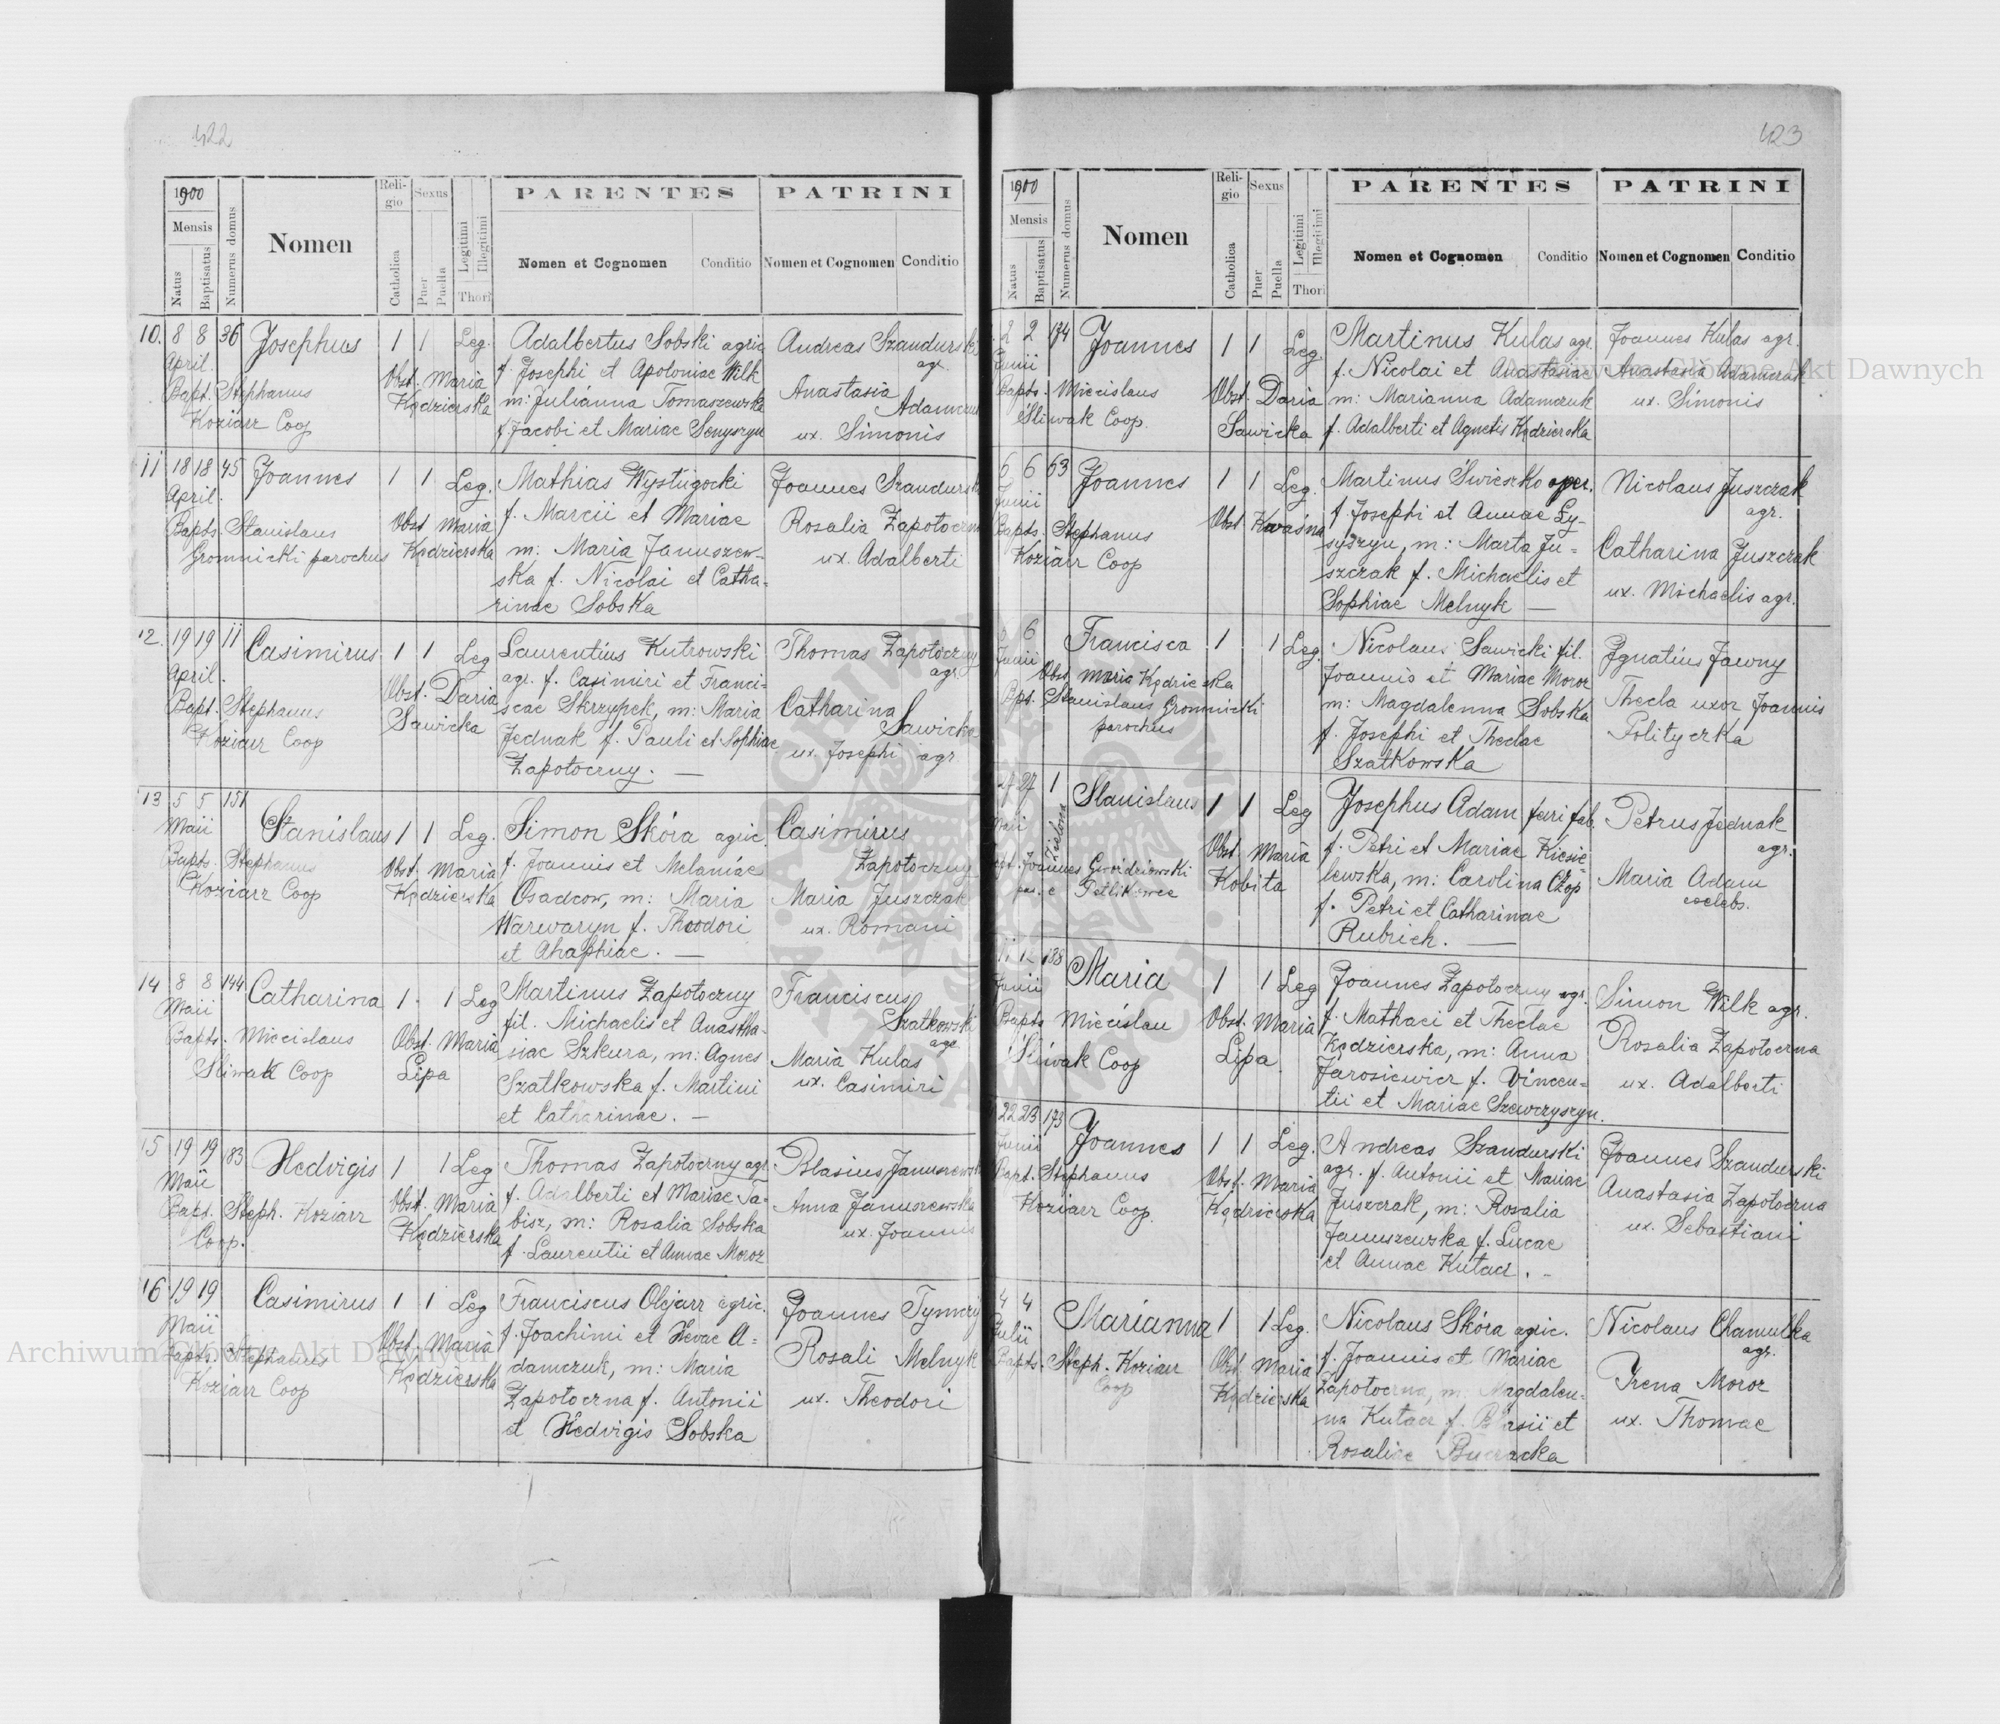 422
1900
Mensis
Natus
Baptisatus
Numerus domus
Nomen
Religio
Catholica
Sexus
Puer
Puella
Legitimi
Illegitimi
Thori
PARENTES
Nomen et Cognomen
Conditio
PATRINI
Nomen et Cognomen
Conditio
10. 8 8 36 Josephus 1 1 Leg.
April.
Bapt. Stephanus
Koziarz Coop
Obst. Maria
Kędzierska
Adalbertus Sobski agric
f. Josephi et Apoloniae Wilk
m: Julianna Tomaszewska
f. Jacobi et Mariae Senyszyn
Andreas Szandurski
agr.
Anastasia
Adamczuk
ux. Simonis
11 18 18 45 Joannes 1 1 Leg.
April.
Bapts. Stanislaus
Gromnicki parochus
Obst Maria
Kędzierska
Mathias Wystugocki
f. Marcii et Mariae
m: Maria Januszew-
ska f. Nicolai et Catha-
rinae Sobska
Joannes Szandurski
Rosalia Zapotoczna
ux. Adalberti
12. 19 19 11 Casimirus 1 1 Leg
April.
Bapt. Stephanus
Koziarz Coop
Obst. Daria
Sawicka
Laurentius Kutrowski
agr. f. Casimiri et Franci-
scae Skrzypek, m: Maria
Jednak f. Pauli et Sophiae
Zapotoczny. —
Thomas Zapotoczny
agr.
Catharina
Sawicka
ux. Josephi agr
13 5 5 151 Stanislaus 1 1 Leg.
Maii
Bapts. Stephanus
Koziarz Coop
Obst Maria
Kędzierska
Simon Skóra agric.
f. Joannis et Melaniae
Osadcow, m: Maria
Warwaryn f. Theodori
et Ahaphiae. —
Casimirus
Zapotoczny
Maria Juszczak
ux. Romani
14 8 8 144 Catharina 1 1 Leg
Maii
Bapts. Miecislaus
Sliwak Coop
Obst. Maria
Lipa
Martinus Zapotoczny
fil. Michaelis et Anastha-
siae Szkura, m: Agnes
Szatkowska f. Martini
et Catharinae. —
Franciscus
Szatkowski
agr.
Maria Kulas
ux. Casimiri
15 19 19 183 Hedvigis 1 1 Leg
Maii
Bapt. Steph. Koziarz
Coop.
Obst. Maria
Kędzierska
Thomas Zapotoczny agr.
f. Adalberti et Mariae Ta-
bisz, m: Rosalia Sobska
f. Laurentii et Annae Moroz
Blasius Januszewski
Anna Januszewska
ux. Joannis
16 19 19 Casimirus 1 1 Leg
Maii
Bapts. Stephanus
Koziarz Coop
Obst. Maria
Kędzierska
Franciscus Olejarz agric.
f. Joachimi et Hevae A-
damczuk, m: Maria
Zapotoczna f. Antonii
et Hedvigis Sobska
Joannes Tymczy
Rosali Melnyk
ux. Theodori
423
1900
Mensis
Natus
Baptisatus
Numerus domus
Nomen
Religio
Catholica
Sexus
Puer
Puella
Legitimi
Illegitimi
Thori
PARENTES
Nomen et Cognomen
Conditio
PATRINI
Nomen et Cognomen
Conditio
2 2 174 Joannes 1 1 Leg
Junii
Bapts. Miecislaus
Śliwak Coop.
Obst Daria
Sawicka
Martinus Kulas agr.
f. Nicolai et Anastasiae
m: Marianna Adamczuk
f. Adalberti et Agnetis Kędzierska
Joannes Kulas agr.
Anastasia Adamczuk
ux. Simonis
6 6 63 Joannes 1 1 Leg.
Junii
Bapts. Stephanus
Koziarz Coop
Obst Kwaśna
Martinus Świeszko oper.
f. Josephi et Annae Ly-
syszyn, m: Marta Ju-
szczak f. Michaelis et
Sophiae Melnyk —
Nicolaus Juszczak
agr.
Catharina Juszczak
ux. Michaelis agr.
6 Francisca 1 1 Leg.
Junii
Obst Maria Kędzierska
Bpt. Stanislaus Gromnicki
parochus
Nicolaus Sawicki fil.
Joannis et Mariae Moroz
m: Magdalenna Sobska
f. Josephi et Theclae
Szatkowska
Ignatius Jawny
Thecla uxor Joannis
Polityczka
27 27 1 Stanislaus 1 1 Leg
Maii
Zielona
Bpt. Joannes Gwoździowski
par. e Petlikowce
Obst Maria
Kobita
Josephus Adam ferri fab.
f. Petri et Mariae Kiesie-
lewska, m: Carolina Czop
f. Petri et Catharinae
Rubrich. —
Petrus Jednak
agr.
Maria Adam
coelebs.
188 Maria 1 1 Leg
Junii
Bapts Miecislau
Śliwak Coop
Obst. Maria
Lipa
Joannes Zapotoczny agr.
f. Mathaei et Theclae
Kędzierska, m: Anna
Jarosiewicz f. Vincen-
tii et Mariae Szewczyszyn.
Simon Wilk agr.
Rosalia Zapotoczna
ux. Adalberti
22 23 173 Joannes 1 1 Leg.
Junii
Bapt. Stephanus
Koziarz Coop.
Obst. Maria
Kędzierska
Andreas Szandurski
agr. f. Antonii et Mariae
Juszczak, m: Rosalia
Januszewska f. Lucae
et Annae Kutacz. —
Joannes Szandurski
Anastasia Zapotoczna
ux. Sebastiani
4 4 Marianna 1 1 Leg.
Julii
Bapts. Steph. Koziarz
Coop
Obst Maria
Kędzierska
Nicolaus Skóra agric.
f. Joannis et Mariae
Zapotoczna, m: Magdalen-
na Kutacz f. Blasii et
Rosaliae Buczacka
Nicolaus Chamulka
agr.
Irena Moroz
ux. Thomae
Archiwum Główne Akt Dawnych
Archiwum Główne Akt Dawnych